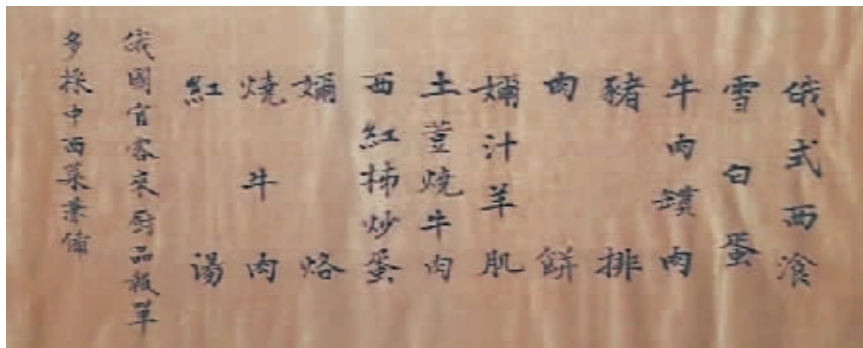 俄式西飡
雪白蛋
牛肉罐肉
豬排
肉餅
嬭汁羊肌
土荳燒牛肉
西紅柿炒蛋
嬭烙
燒牛肉
紅湯
俄國官客來厨品報單
多採中西菜兼備